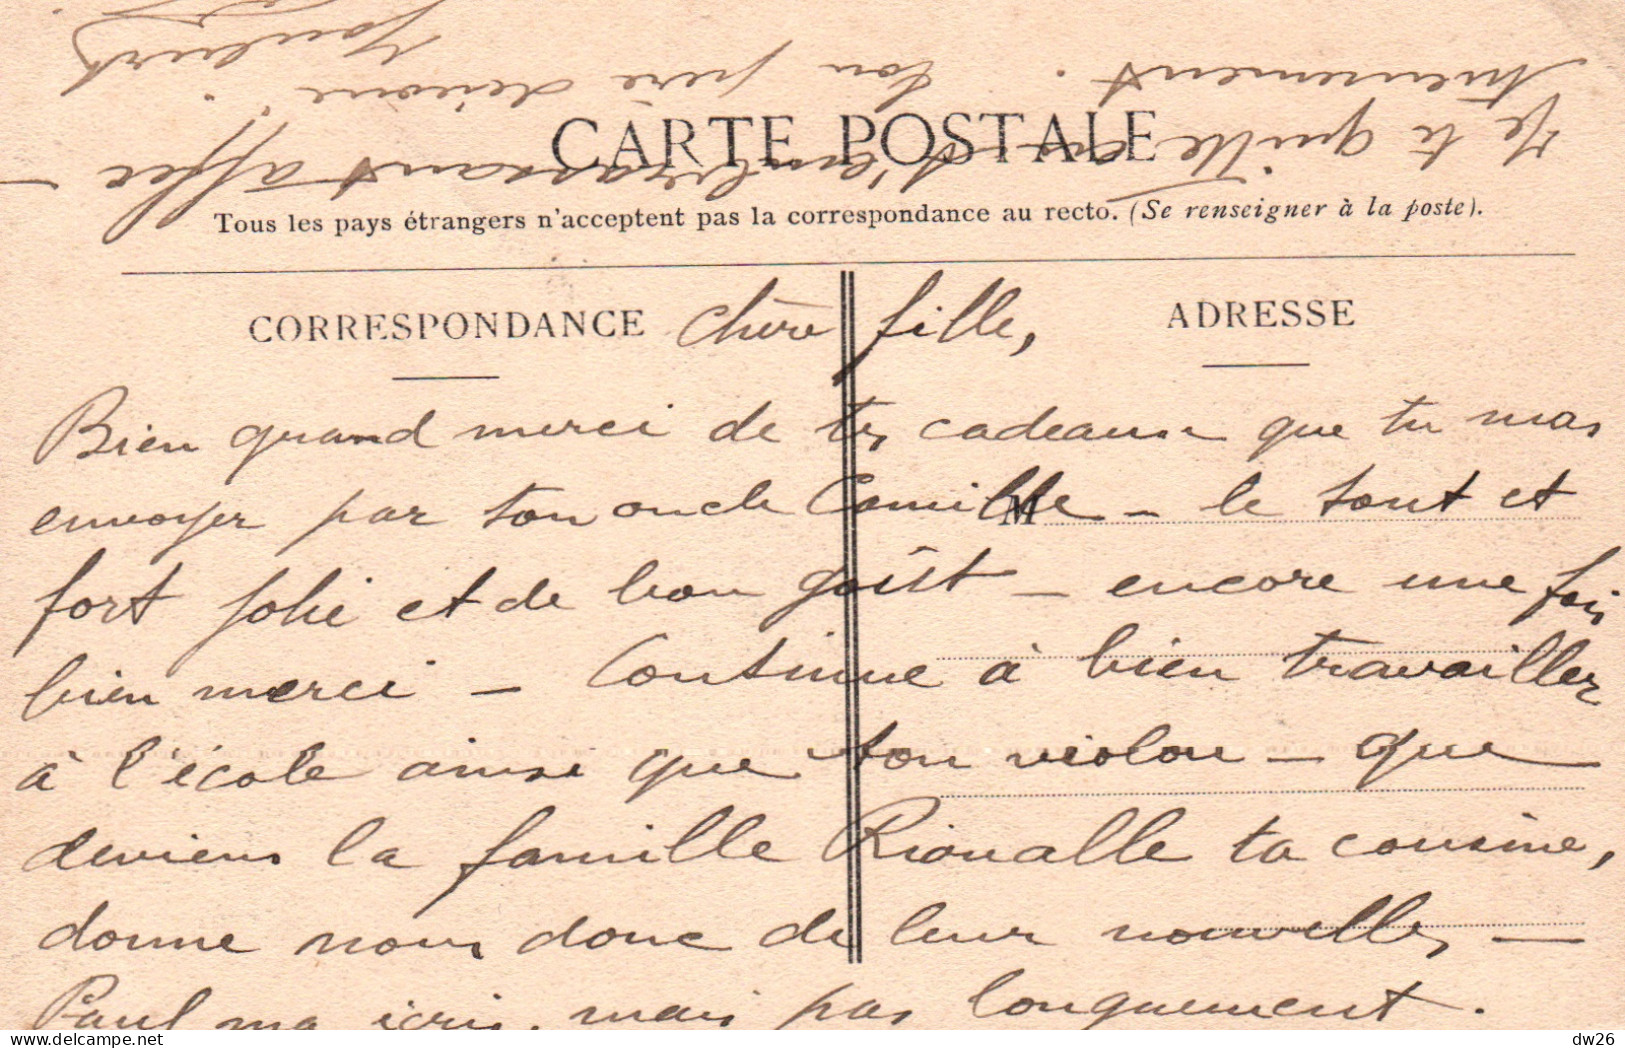 CARTE POSTALE
Tous les pays étrangers n'acceptent pas la correspondance au recto. (Se renseigner à la poste).
CORRESPONDANCE
ADRESSE
M
Chère fille,
Bien quand merci de tes cadeaux que tu mas
envoyer par ton oncle Camille - le tout et
fort jolie et de bon goût - encore une fois
bien merci - Continue à bien travailler
à l'école ainsi que ton violon - que
deviens la famille Rioualle ta cousine,
donne nous donc de leur nouvelles -
Paul ma écris, mais pas longuement.
Je te quitte en t'embrassant affec -
tueusement. ton père